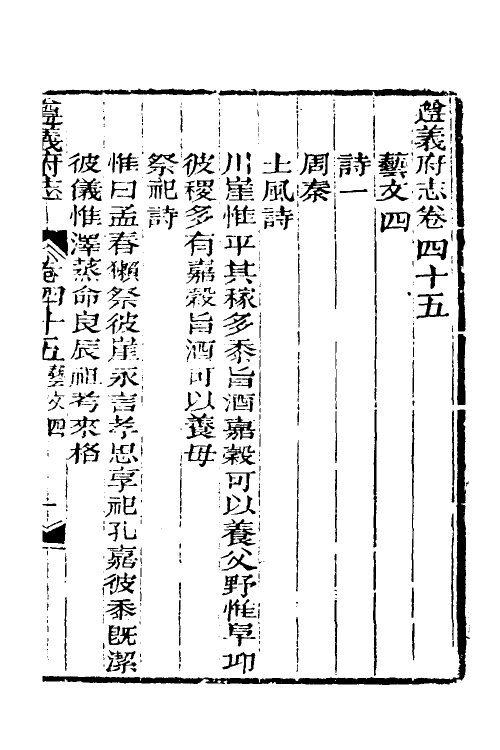 遵義府志卷四十五
藝文四
詩一
周秦
土風詩
川崖惟平其稼多黍旨酒嘉穀可以養父野惟阜卭
彼稷多有嘉穀旨酒可以養母
祭祀詩
惟曰孟春獺祭彼崖永言孝思享祀孔嘉彼黍旣潔
彼儀惟澤蒸命良辰祖考來格
遵義府志 卷四十五 藝文四 一